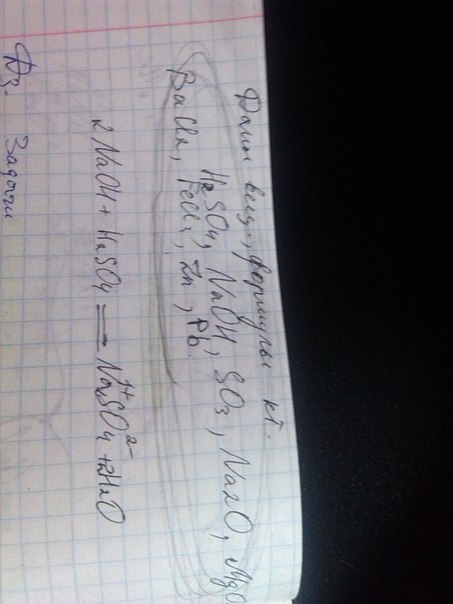 Даны вещ., формулы кт.
H2SO4, NaOH, SO3, Na2O, MgO
BaCl2, FeCl3, Zn, Pb.
2NaOH + H2SO4 = Na2^1+SO4^2- + 2H2O
Дз. Задачи